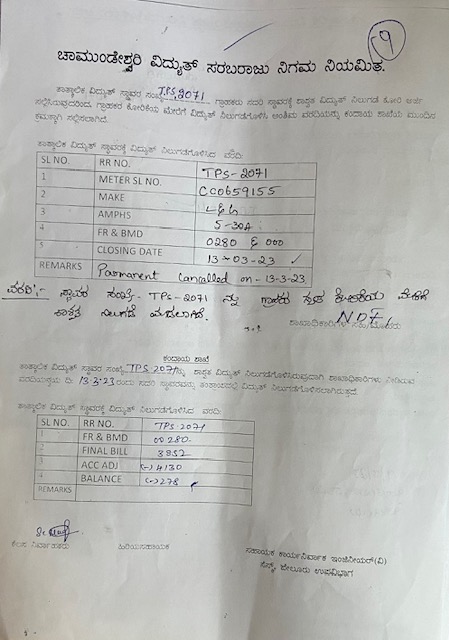 9
ಚಾಮುಂಡೇಶ್ವರಿ ವಿದ್ಯುತ್ ಸರಬರಾಜು ನಿಗಮ ನಿಯಮಿತ.
ತಾತ್ಕಾಲಿಕ ವಿದ್ಯುತ್ ಸ್ಥಾವರ ಸಂಖ್ಯೆ TPS 2071 ಗ್ರಾಹಕರು ಸದರಿ ಸ್ಥಾವರಕ್ಕೆ ಶಾಶ್ವತ ವಿದ್ಯುತ್ ನಿಲುಗಡೆ ಕೋರಿ ಅರ್ಜಿ
ಸಲ್ಲಿಸಿರುವುದರಿಂದ, ಗ್ರಾಹಕರ ಕೋರಿಕೆಯ ಮೇರೆಗೆ ವಿದ್ಯುತ್ ನಿಲುಗಡೆಗೊಳಿಸಿ ಅಂತಿಮ ವರದಿಯನ್ನು ಕಂದಾಯ ಶಾಖೆಯ ಮುಂದಿನ
ಕ್ರಮಕ್ಕಾಗಿ ಸಲ್ಲಿಸಲಾಗಿದೆ.
ತಾತ್ಕಾಲಿಕ ವಿದ್ಯುತ್ ಸ್ಥಾವರಕ್ಕೆ ವಿದ್ಯುತ್ ನಿಲುಗಡೆಗೊಳಿಸಿದ ವರದಿ:
SL NO. RR NO. TPS-2071
1 METER SL NO. CC0659155
2 MAKE L&G
3 AMPHS 5-30A
4 FR & BMD 0280 & 000
5 CLOSING DATE 13-03-23
REMARKS Parmanent Cancelled on - 13-3-23
ವರದಿ:- ಸ್ಥಾವರ ಸಂಖ್ಯೆ- TPS-2071 ನ್ನು ಗ್ರಾಹಕರ ಕೋರಿಕೆಯ ಮೇರೆಗೆ
ಶಾಶ್ವತ ನಿಲುಗಡೆ ಮಾಡಲಾಗಿದೆ.
ಶಾಖಾಧಿಕಾರಿಗಳ
ಕಂದಾಯ ಶಾಖೆ
ತಾತ್ಕಾಲಿಕ ವಿದ್ಯುತ್ ಸ್ಥಾವರ ಸಂಖ್ಯೆ TPS 2071 ನ್ನು ಶಾಶ್ವತ ವಿದ್ಯುತ್ ನಿಲುಗಡೆಗೊಳಿಸಿರುವುದಾಗಿ ಶಾಖಾಧಿಕಾರಿಗಳು ನೀಡಿರುವ
ವರದಿಯನ್ವಯ ದಿ: 13-3-23 ರಂದು ಸದರಿ ಸ್ಥಾವರವನ್ನು ವಿದ್ಯುತ್ ನಿಲುಗಡೆಗೊಳಿಸಲಾಗಿರುತ್ತದೆ.
ತಾತ್ಕಾಲಿಕ ವಿದ್ಯುತ್ ಸ್ಥಾವರಕ್ಕೆ ವಿದ್ಯುತ್ ನಿಲುಗಡೆಗೊಳಿಸಿದ ವರದಿ:
SL NO. RR NO. TPS-2071
1 FR & BMD 00280
2 FINAL BILL 3852
3 ACC ADJ (-) 4130
4 BALANCE (-) 278
REMARKS
ಕೆಲಸ ನಿರ್ವಾಹಕರು ಹಿರಿಯಸಹಾಯಕ ಸಹಾಯಕ ಕಾರ್ಯನಿರ್ವಾಹಕ ಇಂಜಿನಿಯರ್(ವಿ)
ಸೆಸ್ಕ್, ಬೇಲೂರು ಉಪವಿಭಾಗ